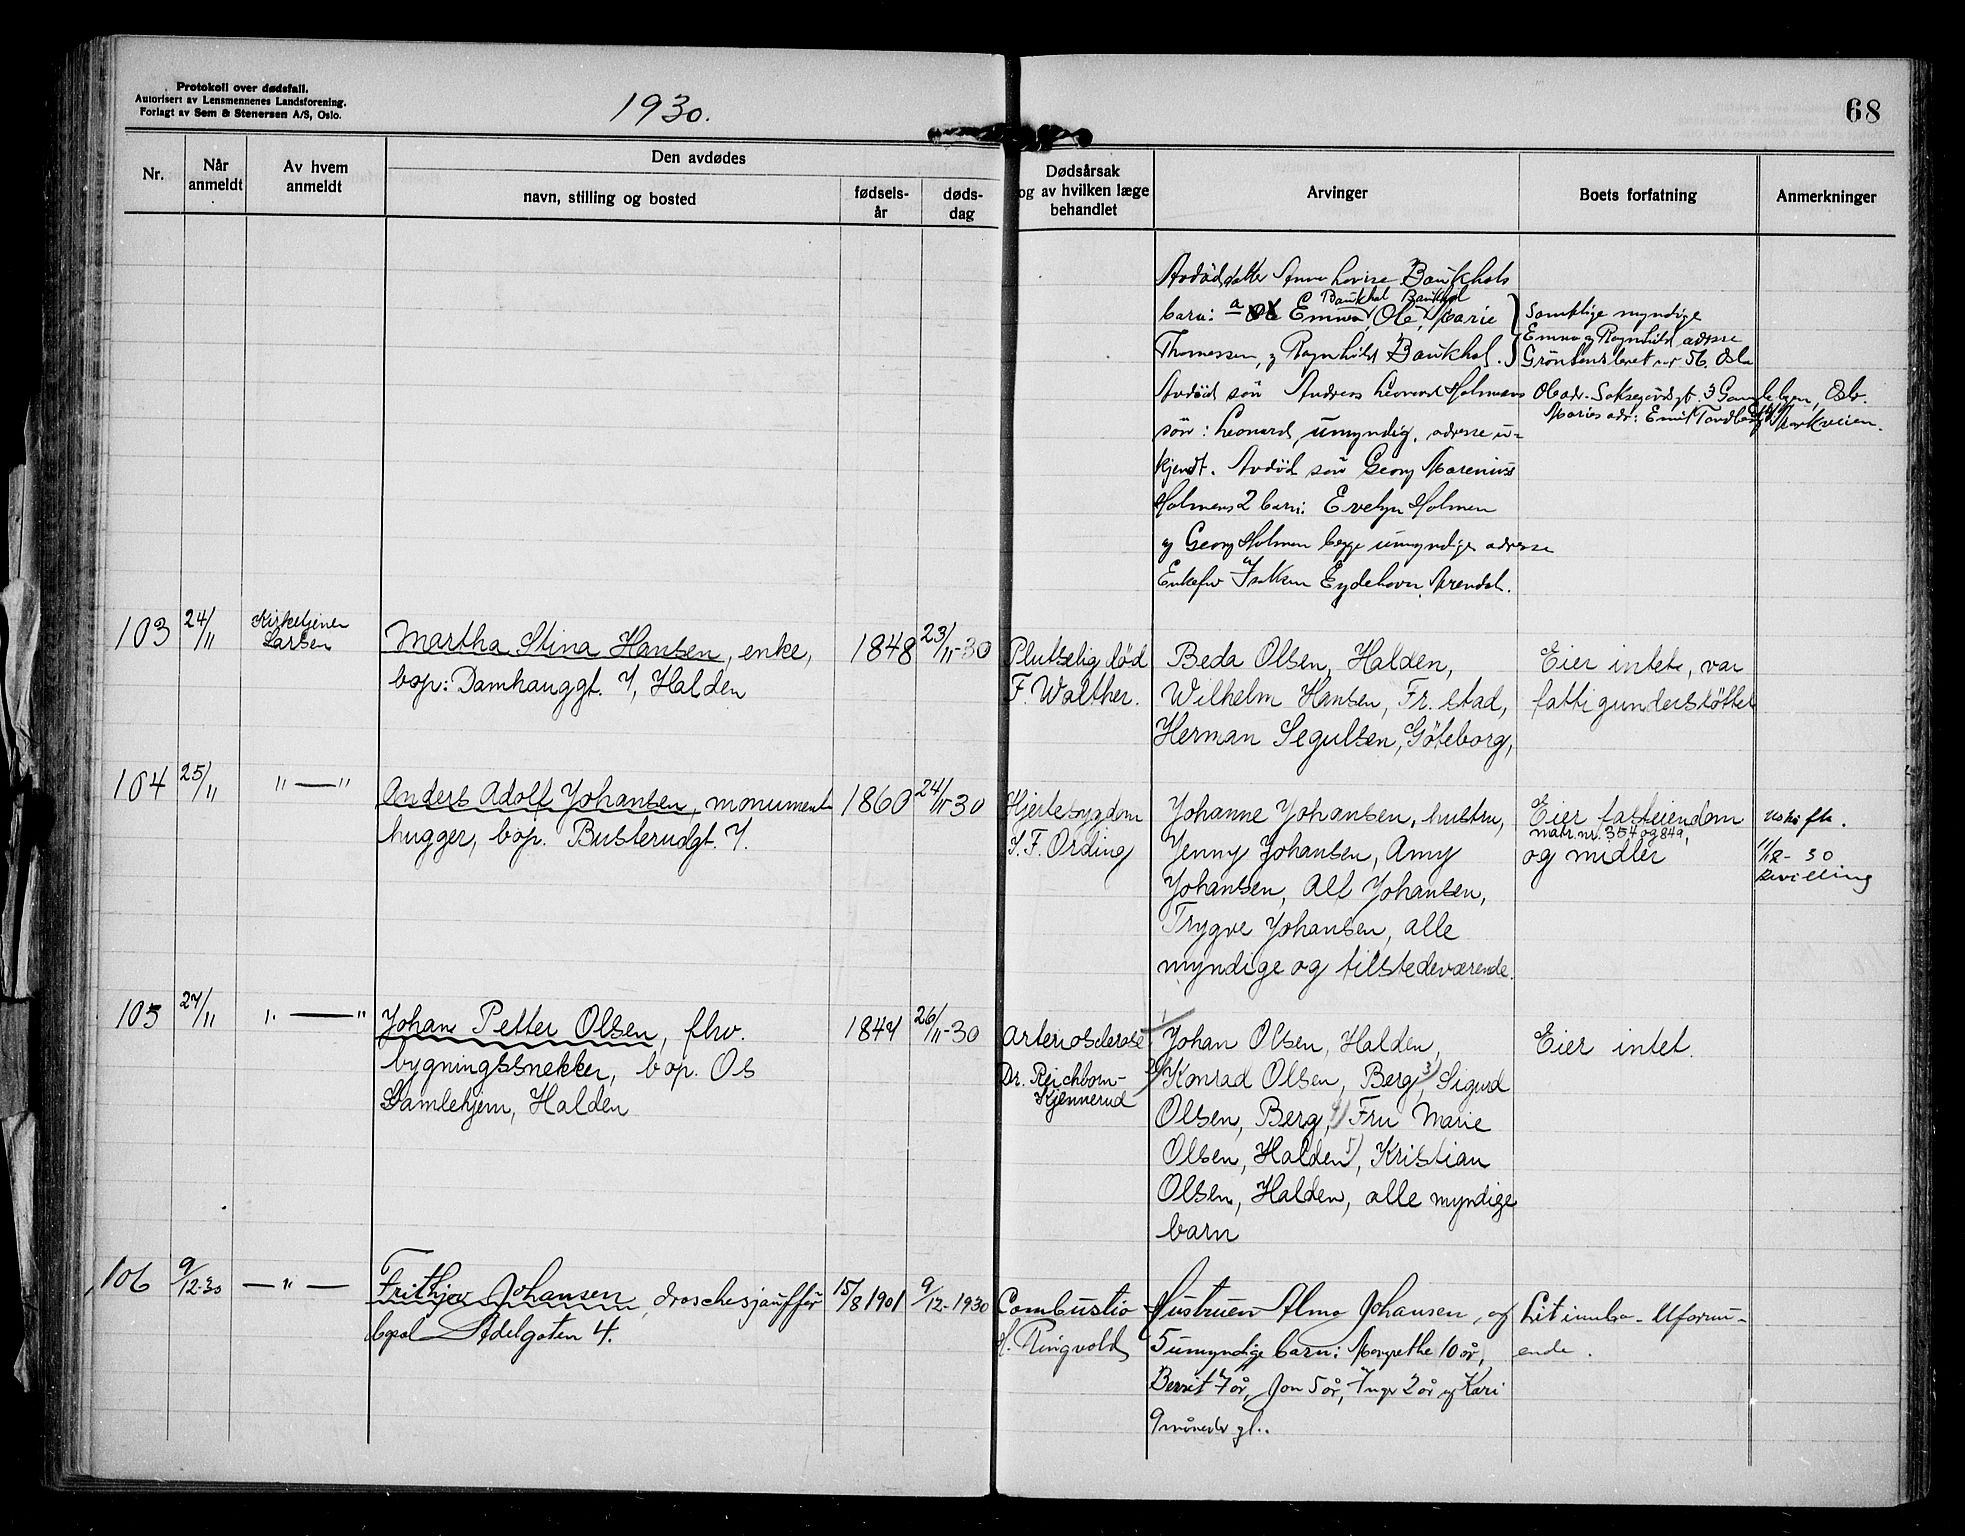 Protokoll over dødsfall.
Autorisert av Lensmennenes Landsforening.
Forlagt av Sem & Stenersen A/S, Oslo.
1930.
68
Nr.
Når anmeldt
Av hvem anmeldt
Den avdødes
navn, stilling og bosted
fødsels-år
døds-dag
Dødsårsak og av hvilken læge behandlet
Arvinger
Boets forfatning
Anmerkninger
Avdød datter Anna Lovise Baukhols
Baukhol Baukhol
barn: a Emma, Ole, Marie
Thomessen, og Ragnhild Baukhol.
Samtlige myndige
Emma og Ragnhild adresse
Grønlensleret nr 56. Oslo
Avdød søn Andreas Leonard Holmens
søn: Leonard, umyndig, adresse u-
kjendt. Avdød søn Georg Marenius
Holmens 2 barn: Evelyn Holmen
og Georg Holmen begge umyndige adresse
Enkefru Eydehavn, Arendal.
Ole adr. 3 Gamlebyen, Oslo.
Maries adr: Emil
103
24/11
Kirketjener
Larsen
Martha Stina Hansen, enke,
bop: Damhauggt. 7, Halden
1848
23/11-30
Plutselig død
F. Walther.
Beda Olsen, Halden,
Wilhelm Hansen, Fr. stad,
Herman Segulsen, Göteborg,
Eier intet, var
fattigunderstøttet
104
25/11
"—"
Anders Adolf Johansen, monument
hugger, bop. Busterudgt. 7.
1860
24/11-30
Hjertesygdom
S. F. Ording
Johanne Johansen, hustru,
Jenny Johansen, Amy
Johansen, Alf Johansen,
Trygve Johansen, alle
myndige og tilstedeværende.
Eier fasteiendom
matr. nr. 354 og 849,
og midler
uskifte.
11/12-30
Bevilling
105
27/11
"—"
Johan Petter Olsen, fhv.
bygningssnekker, bop. Os
Gamlehjem, Halden
1847
26/11-30
Arteriosclerose
Dr. Reichborn-
Kjennerud
1/ Johan Olsen, Halden,
2/ Konrad Olsen, Berg, 3) Sigurd
Olsen, Berg, 4) Fru Marie
Olsen, Halden, 5) Kristian
Olsen, Halden, alle myndige
barn
Eier intet.
106
9/12-30
—"—
Frithjov Johansen, droschesjauffør
bopal Adelgaten 4.
15/8 1901
9/12-1930
Combustio
H. Ringvold
Hustruen Alma Johansen, og
5 umyndige barn: Margrethe 10 år,
Berrit 7 år, Jon 5 år, Inger 2 år og Kari
9 måneder gl..
Lit innbo. Uformu-
ende.